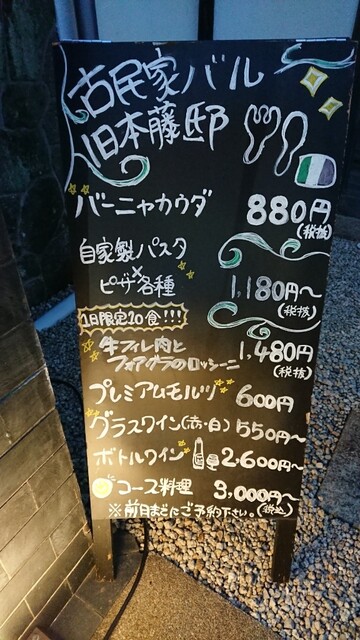 古民家バル
旧本藤邸
バーニャカウダ 880円
(税抜)
自家製パスタ
×
ピザ各種 1,180円〜
(税抜)
1日限定20食!!!
牛フィレ肉と
フォアグラのロッシーニ 1,480円
(税抜)
プレミアムモルツ 600円
グラスワイン(赤・白) 550円〜
ボトルワイン 2,600円〜
コース料理 3,000円〜
(税込)
※前日までにご予約下さい。